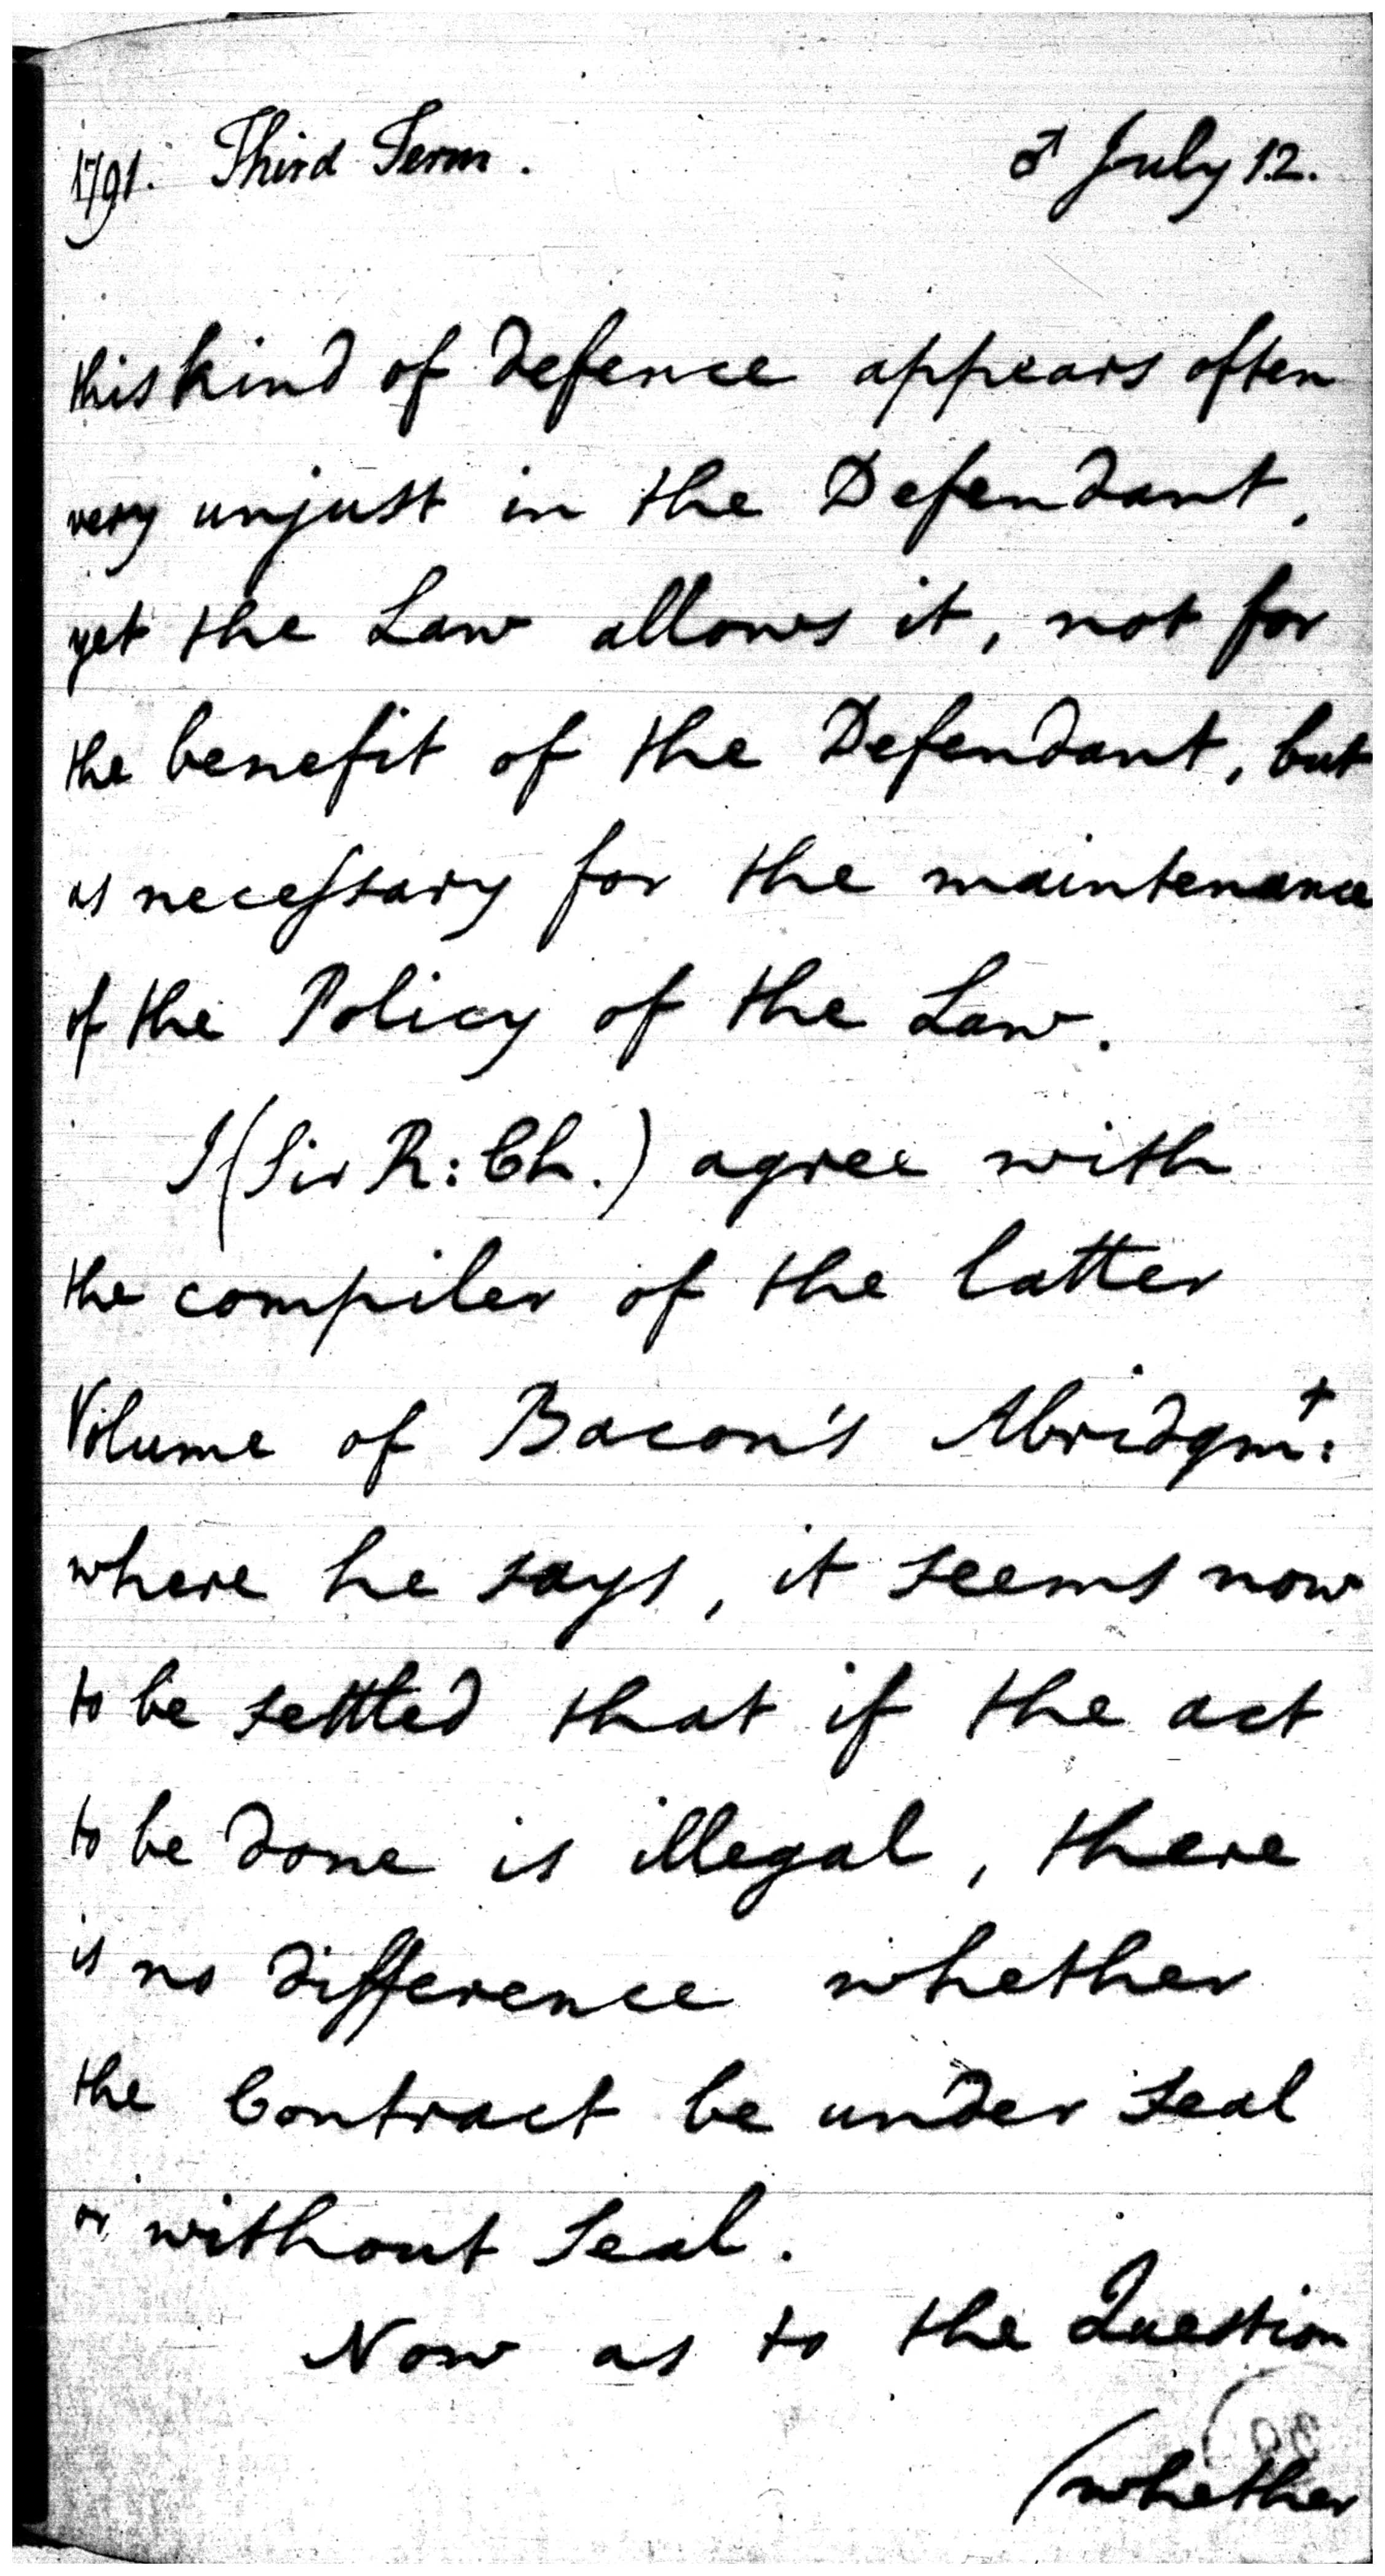 1791. Third Term. ♂ July 12.
this kind of defence appears often
very unjust in the Defendant,
yet the Law allows it, not for
the benefit of the Defendant, but
as neceſsary for the maintenance
of the Policy of the Law.
I (Sir R: Ch.) agree with
the compiler of the latter
Volume of Bacon's Abridgmt:
where he says, it seems now
to be settled that if the act
to be done is illegal, there
is no difference whether
the Contract be under Seal
or without Seal.
Now as to the Question
(whether